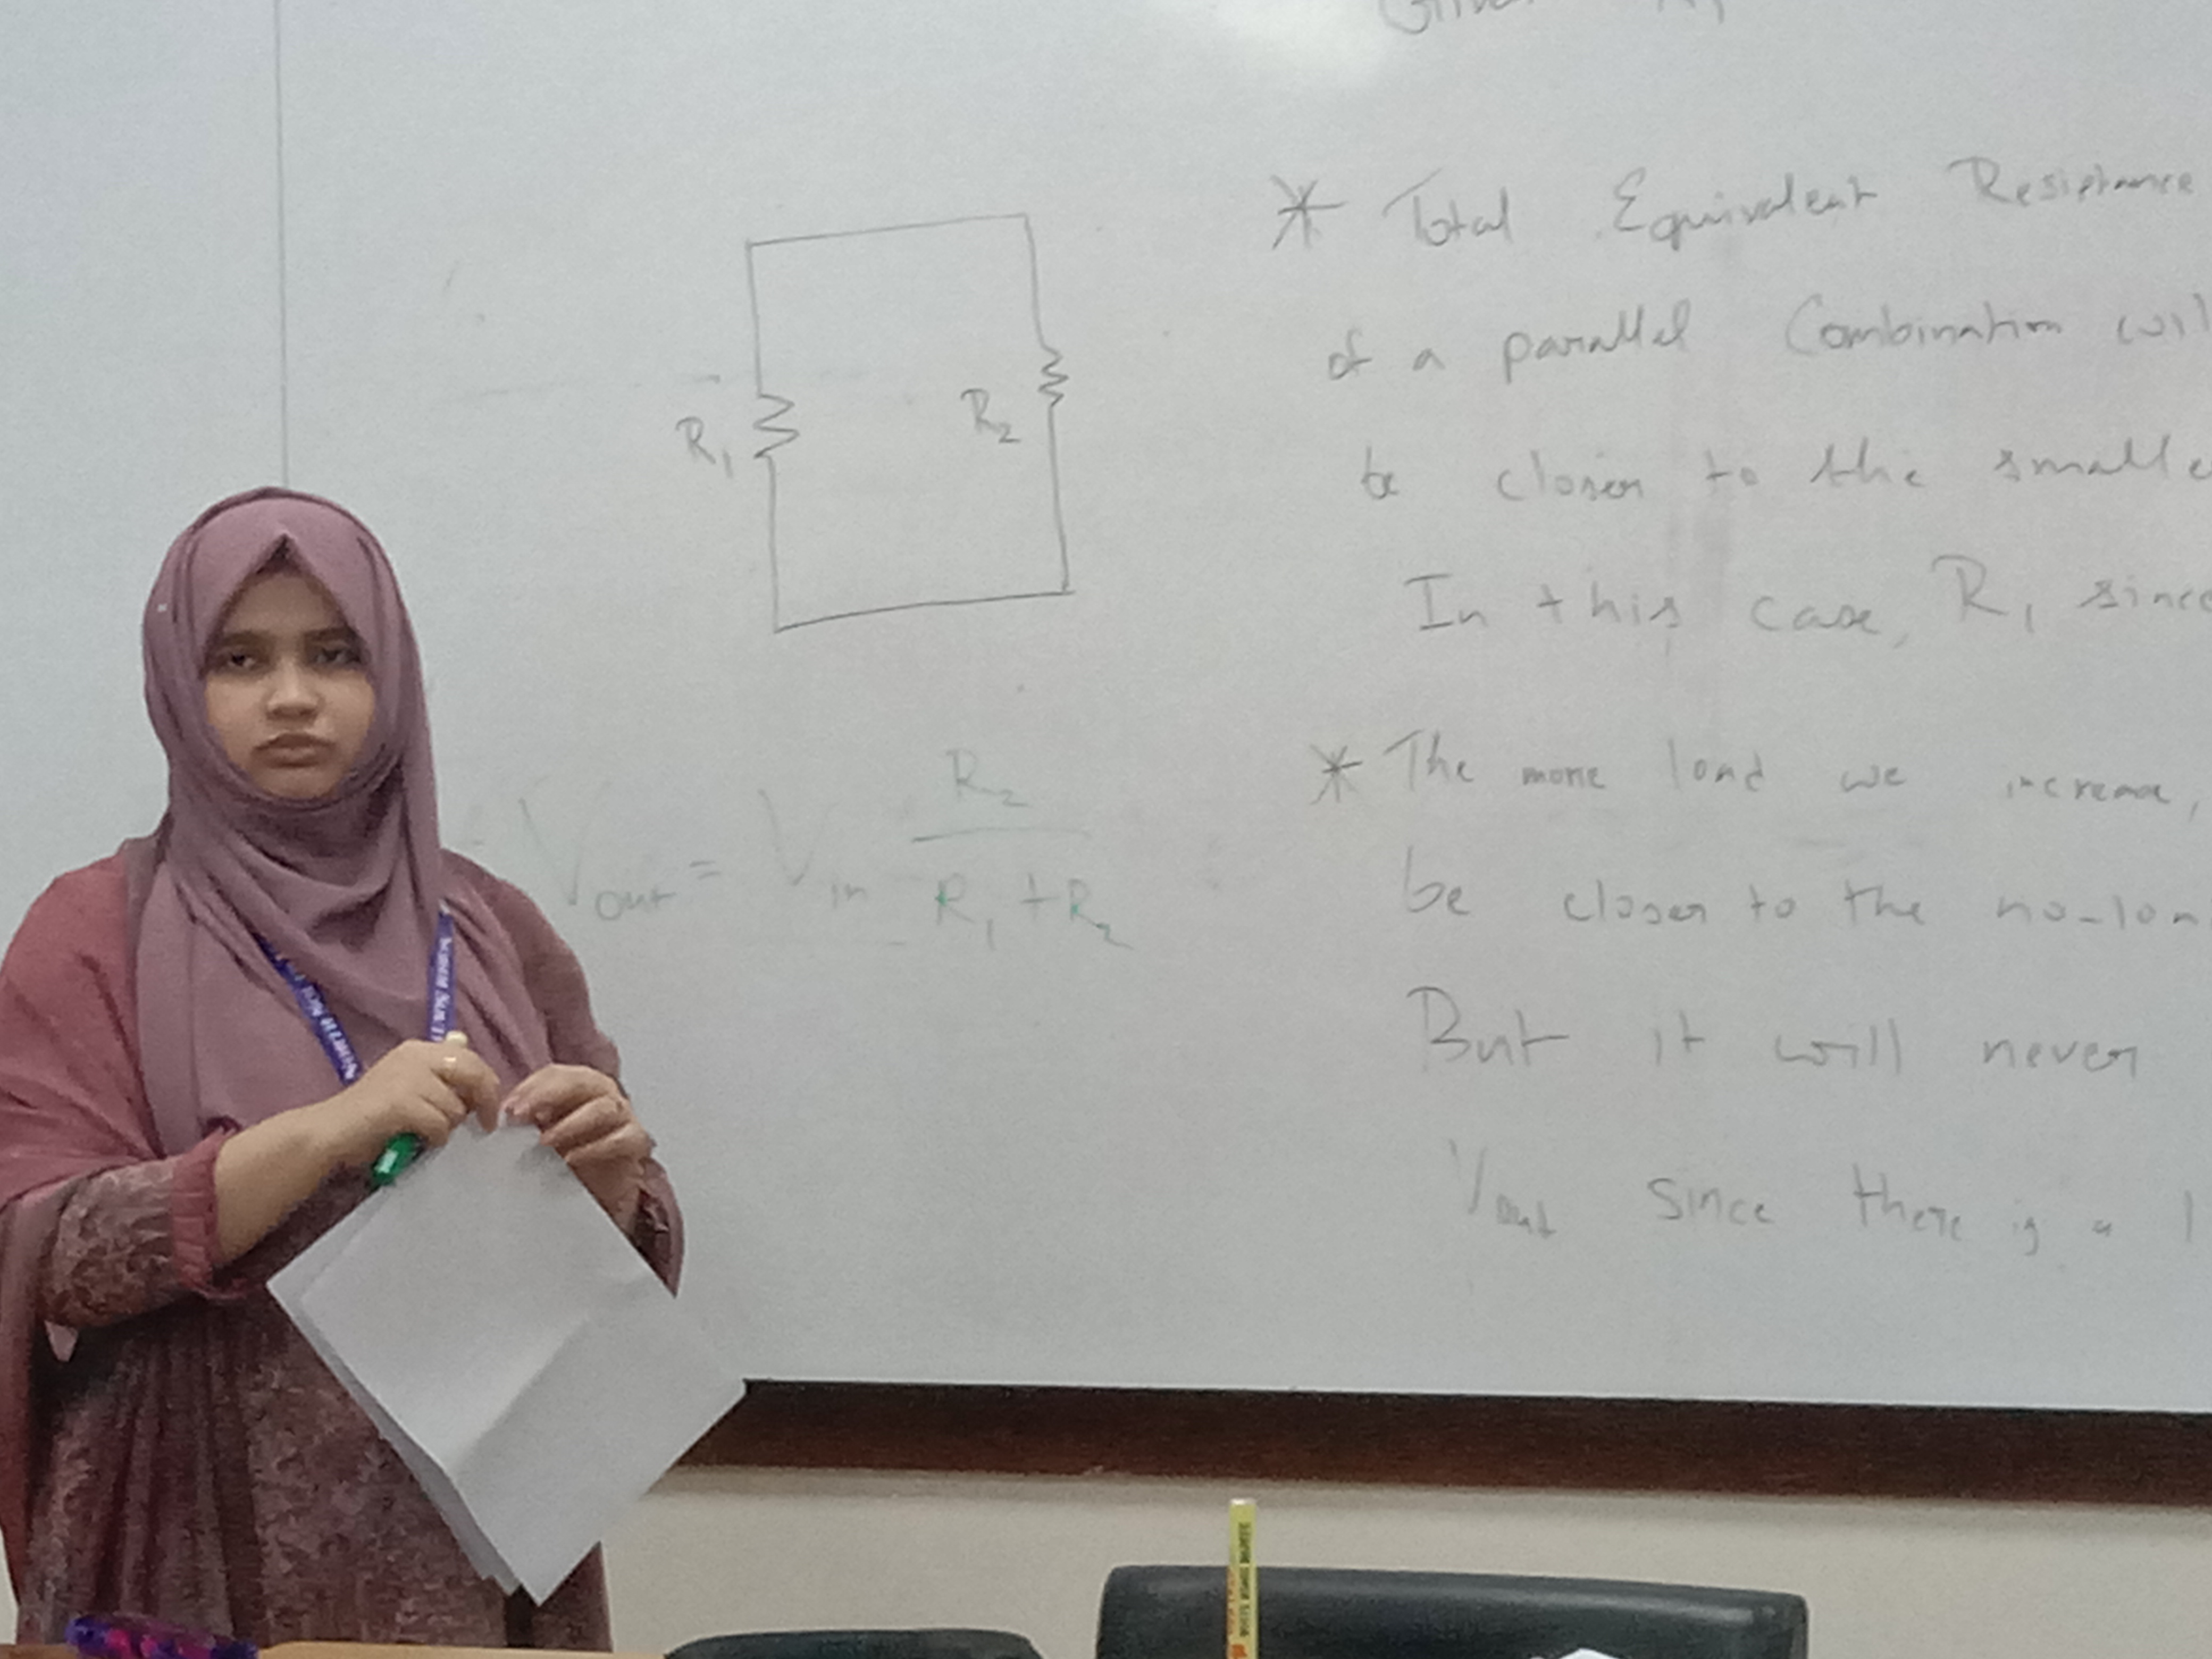 R1
R2
Vout = Vin R2
R1 + R2
* Total Equivalent Resistance
of a parallel Combination wil
be closer to the smalle
In this case, R1 since
* The more load we increase,
be closer to the no-loa
But it will never
Vout since there is a l
NORTH SOUT
NORTH SOU